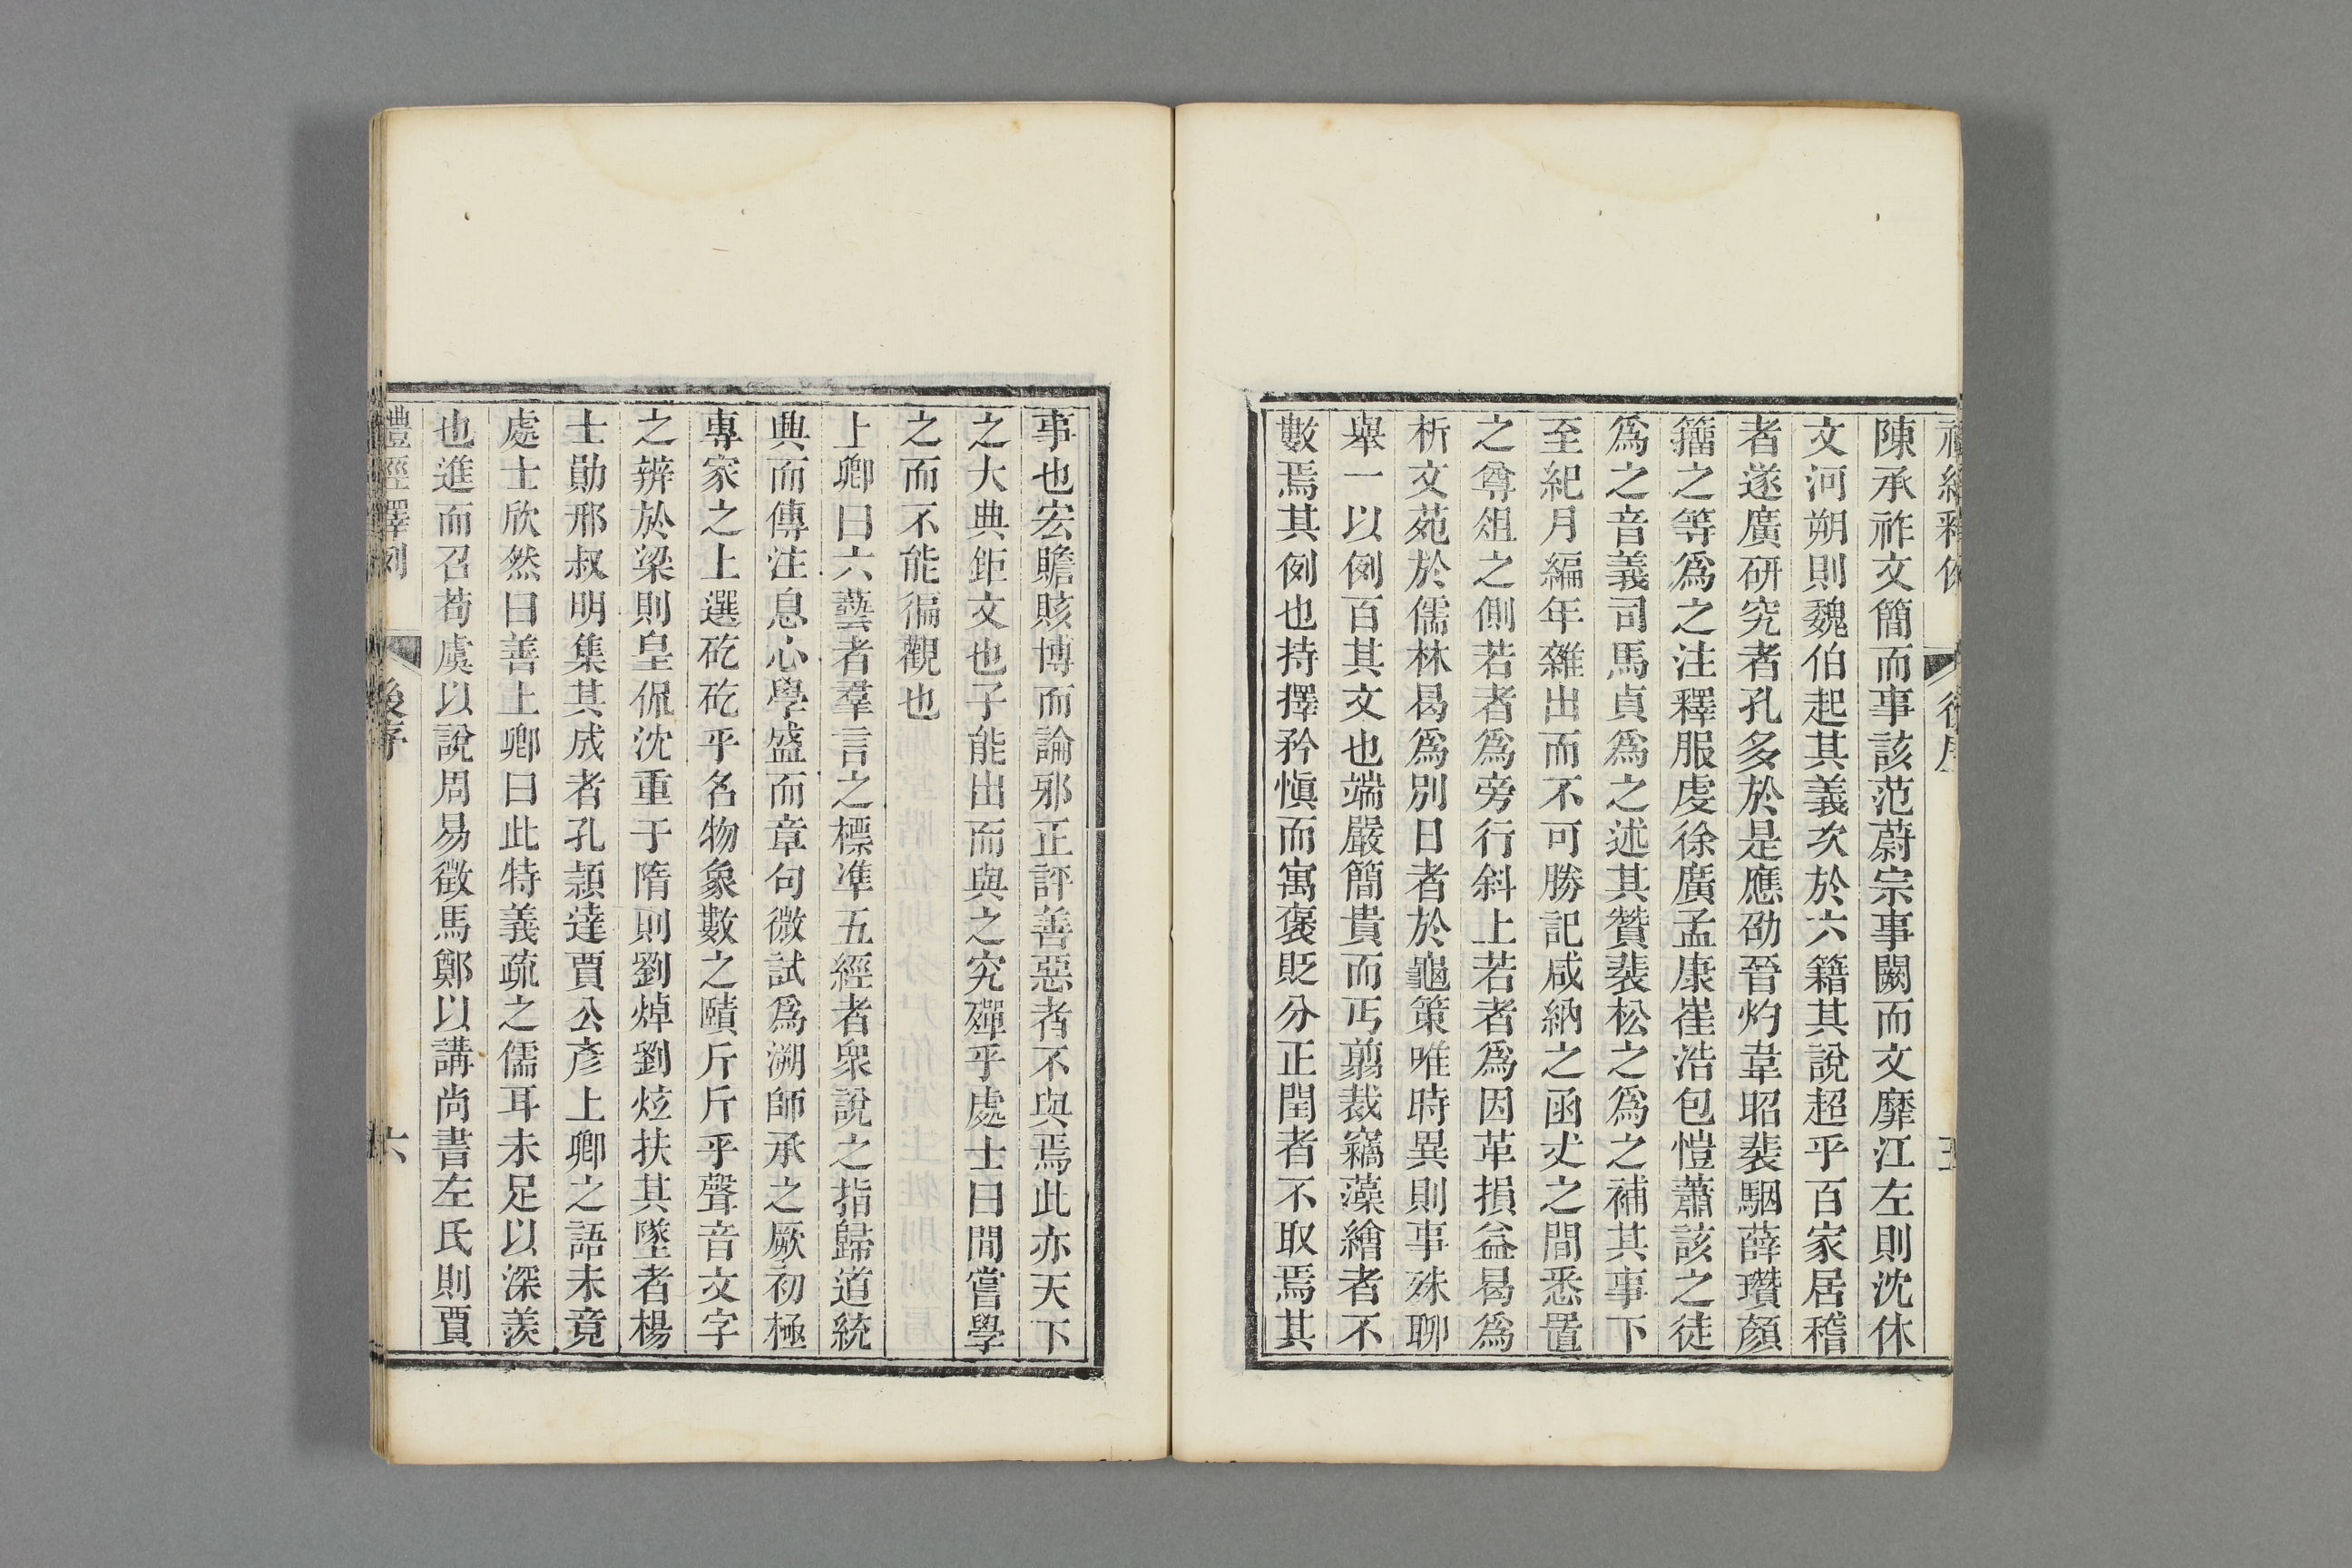 禮經釋例 後序 五
陳承祚文簡而事該范蔚宗事闕而文靡江左則沈休
文河朔則魏伯起其義次於六籍其說超乎百家居稽
者遂廣研究者孔多於是應劭晉灼韋昭裴駰薛瓚顏
籀之等爲之注釋服虔徐廣孟康崔浩包愷蕭該之徒
爲之音義司馬貞爲之述其贊裴松之爲之補其事下
至紀月編年雜出而不可勝記咸納之函丈之間悉置
之尊俎之側若者爲旁行斜上若者爲因革損益曷爲
析文苑於儒林曷爲別日者於龜策唯時異則事殊聊
舉一以例百其文也端嚴簡貴而丐翦裁竊藻繪者不
數焉其例也持擇矜愼而寓褒貶分正閏者不取焉其
事也宏贍賅博而論邪正評善惡者不與焉此亦天下
之大典鉅文也子能出而與之究殫乎處士曰閒嘗學
之而不能徧觀也
上卿曰六藝者羣言之標準五經者衆說之指歸道統
典而傳注息心學盛而章句微試爲溯師承之厥初極
專家之上選矻矻乎名物象數之賾斤斤乎聲音文字
之辨於梁則皇侃沈重于隋則劉焯劉炫扶其墜者楊
士勛邢叔明集其成者孔頴達賈公彥上卿之語未竟
處士欣然曰善上卿曰此特義疏之儒耳未足以深羨
也進而召荀虞以說周易徵馬鄭以講尚書左氏則賈
禮經釋例 後序 六